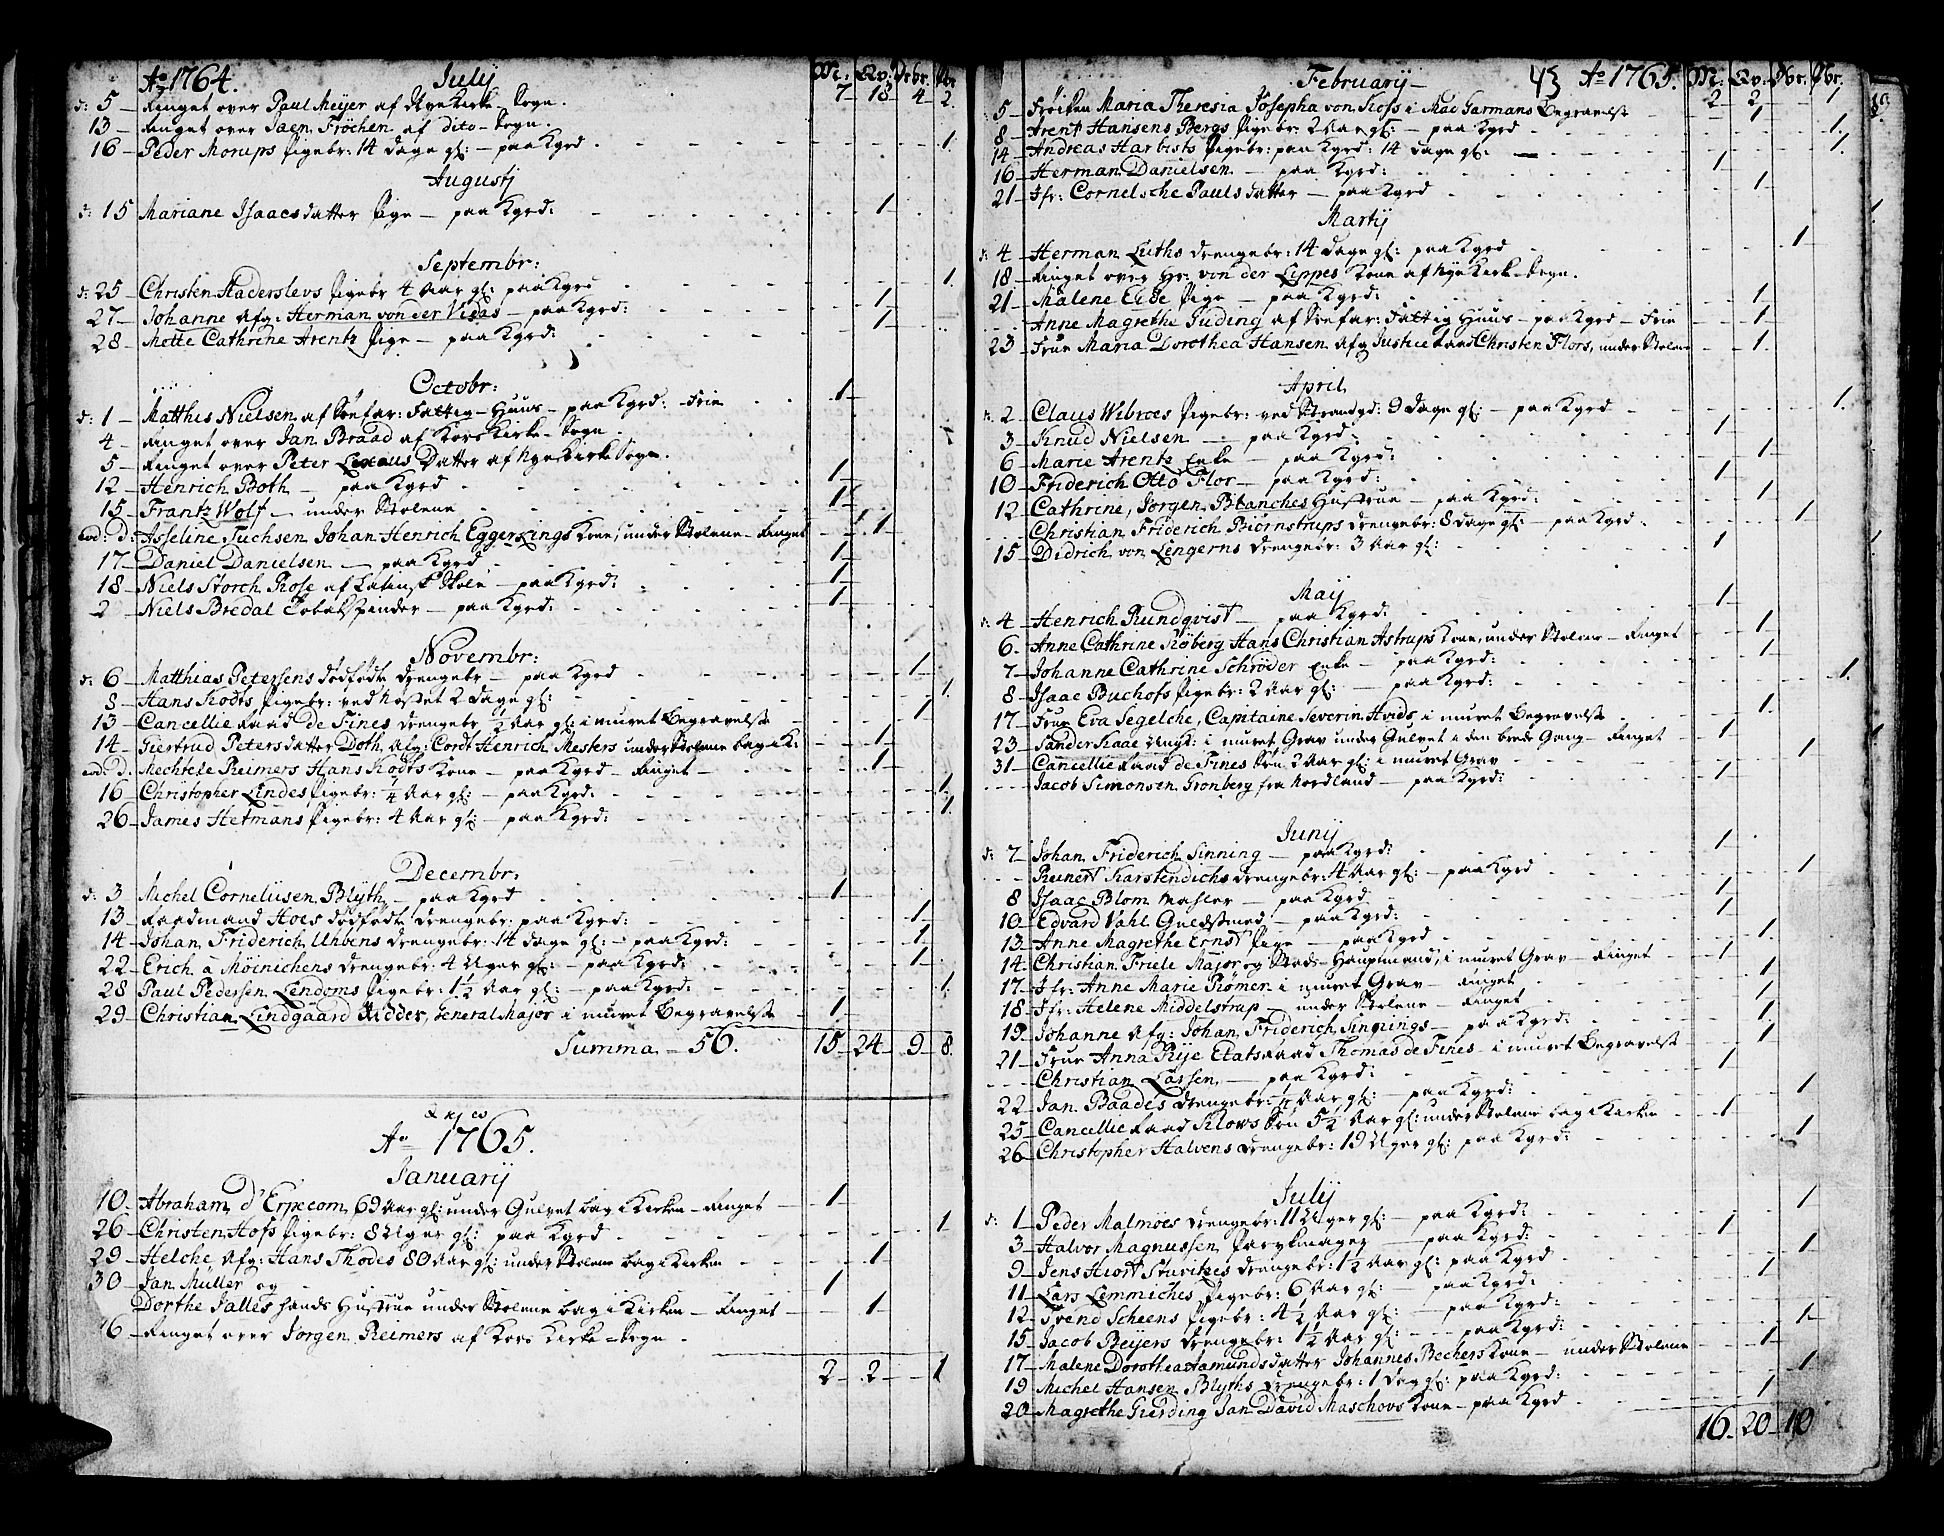 Ao 1764. July M: Qv: Drbr. Pbr
d: 5 — Ringet over Paul Meyer af Nye Kirke-Sogn. 7 — 18 — 4 — 2.
13 — Ringet over Jaen Fröchen af dito-Sogn.
16 — Peder Morups Pigebr: 14 dage gl: — paa Kgrd 1.
Augustj
d: 15 Mariane Isaacsdatter Pige — paa Kgrd: 1
Septembr:
d: 25 — Christen Haderslevs Pigebr 4 Aar gl: paa Kgrd 1.
27 — Johanne Afg: Herman von der Vidas — paa Kgrd: 1
28 — Mette Cathrine Arentz Pige — paa Kgrd: 1
Octobr:
d: 1 — Matthis Nielsen af Søefar: Fattig-Huus — paa Kgrd: Frie 1
4 — Ringet over Jan Braad af Kors Kirke-Sogn
5 — Ringet over Peter Datter af Nye Kirke Sogn.
12 — Henrich Both — paa Kgrd 1
15 — Frantz Wolf — under Stolene 1
eod: D: Asseline Tuchsen Johan Henrich Eggerkings Kone, under Stolene — Ringet 1
17 — Daniel Danielsen — paa Kgrd 1
18 — Niels Storch Rose af Latinsk Skole — paa Kgrd: 1
2 — Niels Bredal Tobakspinder — paa Kgrd: 1
Novembr:
d: 6 — Matthias Petersens dødfødte drengebr — paa Kgrd 1
8 — Hans Kodts Pigebr: ved Nostet 2 dage gl: 1.
13 — Cancellie Raad De Fines drengebr ½ Aar gl: i muret Begravelse 1
14 — Giertrud Petersdatter Doth, Afg: Cordt Henrich Mesters under Stolene bag i K: 1
eod: D. Mechtele Reimers Hans Kodts Kone — paa Kgrd — Ringet — 1
16 — Christopher Lindes Pigebr: ¼ Aar gl: — paa Kgrd: 1.
26 — James Hetmans Pigebr: 4 Aar gl: — paa Kgrd: 1.
Decembr:
d: 3 Michel Corneliisen Blyth — paa Kgrd 1
13 — Raadmand Hoes dødfødte drengebr: paa Kgrd: 1
14 — Johan Friderich Uhvens drengebr: 14 dage gl: — paa Kgrd: 1
22 — Erich à Möinichens drengebr: 4 Uger gl: — paa Kgrd: 1
28 Paul Pedersen Lendoms Pigebr: 1½ Aar gl: — paa Kgrd: 1.
29 — Christian Lindgaard Ridder, General Major i muret Begravelse 1
Summa — 56. 15 — 24 — 9 — 8.
Ao 1765.
Januarij
10 — Abraham d'Erpecom, 69 Aar gl: under Gulvet bag i Kirken — Ringet 1
26 — Christen Hofs Pigebr: 8 Uger gl: paa Kgrd 1.
29 — Helche, Afg: Hans Thodes 80 Aar gl: under Stolene bag i Kirken 1
30 — Jan Muller og 1
Dorthe Jalles hands Hustrue under Stolene bag i Kirken — Ringet 1
6 — Ringet over Jörgen Reimers af Kors Kirke-Sogn
2 — 2 — 1
Februarij Ao 1765. M: Qv: Dbr: Pbr.
5 — Frøiken Maria Theresia Josepha von Koss i Mad Garmans Begravelse 2 — 2 — 1
8 — Arent Hansens Bergs Pigebr: 2 Aar gl: — paa Kgrd 1.
14 — Andreas Harbitz Pigebr: paa Kgrd: 14 dage gl: 1.
16 — Herman Danielsen — paa Kgrd: 1
21 — Jfr: Cornelsche Pauls datter — paa Kgrd 1
Martij
d: 4 — Herman Luths drengebr: 14 dage gl: paa Kgrd 1
18 — Ringet over Hr: von der Lippes Kone af Nye Kirke-Sogn.
21 — Malene Eide Pige — paa Kgrd: 1
Anne Magrethe Juding af Søefar: Fattig Huus — paa Kgrd — Frie 1
23 — Frue Maria Dorothea Hansen Afg Justice Raad Christen Flors, under Stolene 1.
April
d: 2 Claus Wibroes Pigebr: ved Strandgd: 9 dage gl: — paa Kgrd 1.
3 — Knud Nielsen — paa Kgrd: 1
6 — Marie Arentz Enke — paa Kgrd: 1
10 — Friderich Otto Flor — paa Kgrd: 1
12 — Cathrine, Jorgen Blanches Hustrue — paa Kgrd: 1
Christian Friderich Biörnstrups drengebr: 8 dage gl: — paa Kgrd 1
15 — Didrich von Lengerns drengebr: 3 Aar gl: 1
Maij
d: 4 — Henrich Rundqvist — paa Kgrd: 1
6 — Anne Cathrine Röberg Hans Christian Astrups Kone, under Stolene — Ringet 1
7 — Johanne Cathrine Schröder Enke — paa Kgrd: 1
8 — Isaac Buchofs Pigebr: 2 Aar gl: — paa Kgrd: 1.
17 — Frue Eva Segelche, Capitaine Severin Hvids i muret Begravelse 1
23 — Sander Kaae Ungk: i muret Grav under Gulvet i den brede Gang — Ringet 1
31 — Cancellie Raad de Fines Søn 2 Aar gl: i muret Grav 1
Jacob Simonsen Gronberg fra Nordland — paa Kgrd: 1
Junij
d: 7 — Johan Friderich Sinning — paa Kgrd: 1
Reinert Karstendichs drengebr: 4 Aar gl: — paa Kgrd 1
8 Isaac Blom Maschov — paa Kgrd 1
10 — Edvard Vahl Guldsmed — paa Kgrd: 1
13 — Anne Magrethe Ernst Pige — paa Kgrd 1
14 — Christian Friele Major og Stads-Hauptmand, i muret Grav — Ringet 1
17 — Jfr: Anne Marie Römer i muret Grav — Ringet 1
18 — Jfr: Helene Middelstrup — under Stolene — Ringet 1
19 — Johanne Afg: Johan Friderich Sinnings — paa Kgrd: 1
21 — Frue Anna Rye Etatsraad Thomas de Fines — i muret Begravelse 1
Christian Larsen — paa Kgrd: 1
22 — Jan Baades drengebr: ¼ Aar gl: — paa Kgrd: 1
25 — Cancellie Raad Klows Søn 5½ Aar gl: under Stolene bag i Kirken 1
26 — Christopher Halvens drengebr: 19 Uger gl: paa Kgrd: 1
Julij
d: 1 — Peder Malmöes drengebr: 11 Uger gl: — paa Kgrd: 1
3 — Halvor Magnussen Parykmager — paa Kgrd: 1
9 — Jens Hiort Sturitzes drengebr: 1½ Aar gl: paa Kgrd 1
11 — Lars Lemmiches Pigebr: 6 Aar gl: — paa Kgrd: 1
12 — Svend Scheens Pigebr: 4½ Aar gl: — paa Kgrd:
15 — Jacob Beijers drengebr: 1½ Aar gl: — paa Kgrd: 1
17 — Malene Dorothea Aamunds datter Johannes Bechers Kone — under Stolene 1
19 Michel Hansen Blyths drengebr: 1 Dag gl: paa Kgrd: 1
20 — Magrethe Gierding Jan David Maschovs Kone — paa Kgrd 1
16 — 20 — 10